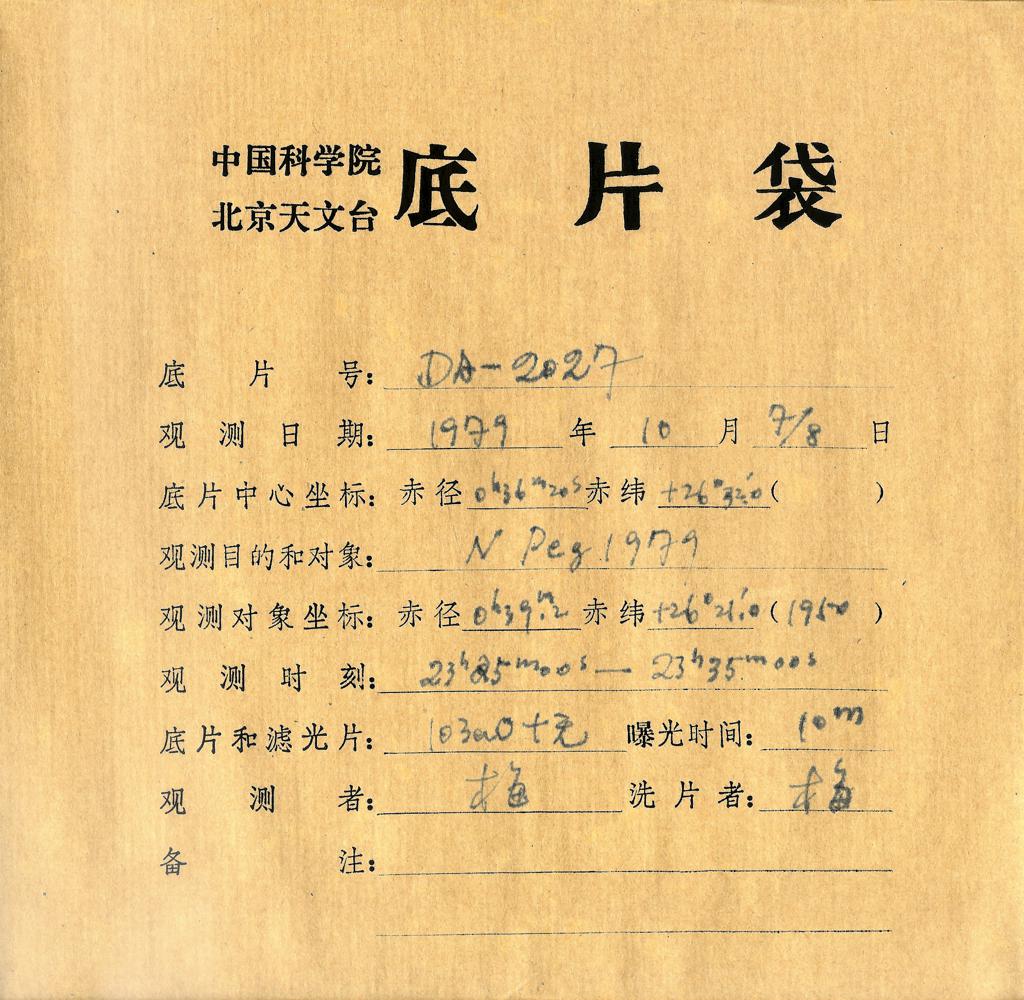 中国科学院
北京天文台
底片袋
底片号: DA-2027
观测日期: 1979 年 10 月 7/8 日
底片中心坐标: 赤径 0ʰ36ᵐ20ˢ 赤纬 +26°32′.0 ( )
观测目的和对象: N Peg 1979
观测对象坐标: 赤径 0ʰ39ᵐ.2 赤纬 +26°21′.0 (1950)
观测时刻: 23ʰ25ᵐ00ˢ — 23ʰ35ᵐ00ˢ
底片和滤光片: 103aO+无 曝光时间: 10ᵐ
观测者: 梅 洗片者: 梅
备注: